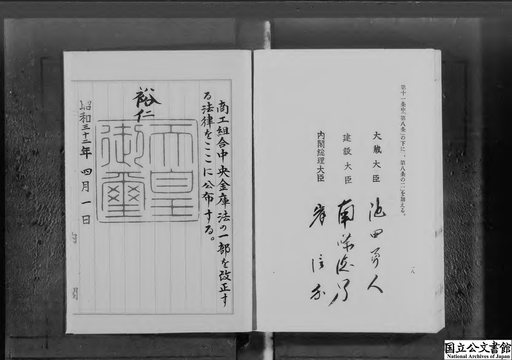 第十一条中「第八条」の下に「、第八条の二」を加える。
大蔵大臣 池田勇人
建設大臣 南条徳男
内閣総理大臣 岸信介
商工組合中央金庫法の一部を改正す
る法律をここに公布する。
裕仁
天皇
御璽
昭和三十二年四月一日
国立公文書館
National Archives of Japan